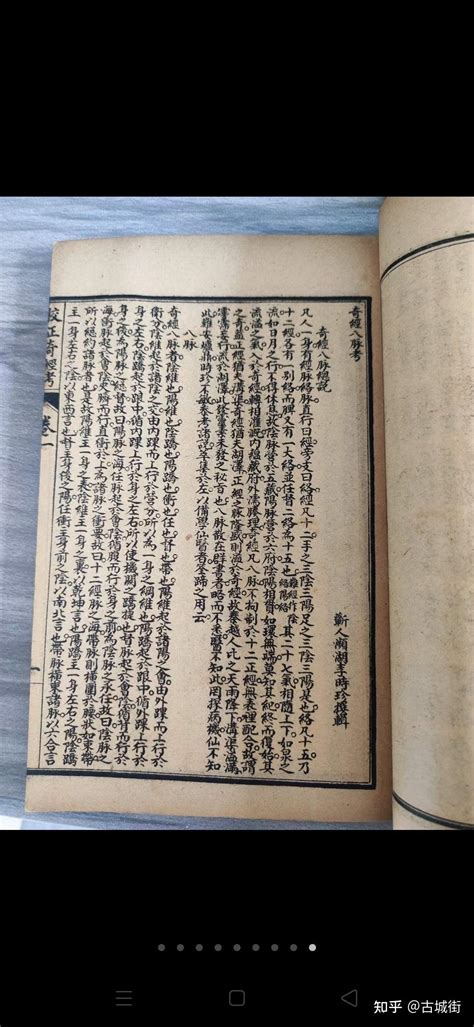 奇經八脈考
蘄人瀕湖李時珍撰輯
奇經八脈總說
凡人一身有經脈絡脈直行曰經旁支曰絡經凡十二手之三陰三陽足之三陰三陽是也絡凡十五乃
十二經各有一別絡而脾又有一大絡並任督二絡為十五也難經作陰絡陽絡其二十七氣相隨上下如泉之
流如日月之行不得休息故陰脈營於五藏陽脈營於六府陰陽相貫如環無端莫知其紀終而復始其
流溢之氣入於奇經轉相灌溉內溫藏府外濡腠理奇經凡八脈不拘制於十二正經無表裡配合故謂
之奇蓋正經猶夫溝渠奇經猶夫湖澤正經之脈隆盛則溢於奇經故秦越人比之天雨降下溝渠溢滿
霶霈妄行流於湖澤此發靈素未發之秘旨也八脈散在群書者略而不悉醫不知此罔探病機仙不知
此難安爐鼎時珍不敏參考諸說萃集於左以備學仙醫者筌蹄之用云
八脈
奇經八脈者陰維也陽維也陰蹻也陽蹻也衝也任也督也帶也陽維起於諸陽之會由外踝而上行於
衛分陰維起於諸陰之交由內踝而上行於營分所以為一身之綱維也陽蹻起於跟中循外踝上行於
身之左右陰蹻起於跟中循內踝上行於身之左右所以使機關之蹻捷也督脈起於會陰循背而行於
身之後為陽脈之總督故曰陽脈之海任脈起於會陰循腹而行於身之前為陰脈之承任故曰陰脈之
海衝脈起於會陰夾臍而行直衝於上為諸脈之衝要故曰十二經脈之海帶脈則橫圍於腰狀如束帶
所以總約諸脈者也是故陽維主一身之表陰維主一身之裏以乾坤言也陽蹻主一身左右之陽陰蹻
主一身左右之陰以東西言也督主身後之陽任衝主身前之陰以南北言也帶脈橫束諸脈以六合言
正奇經考 卷一
知乎 @古城街